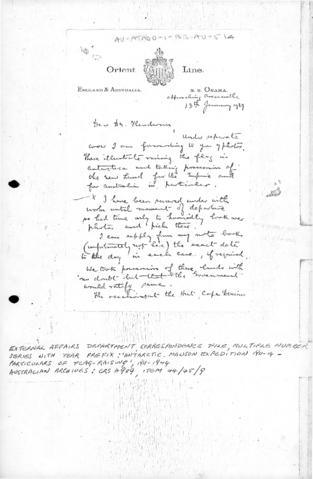 Orient Line.
ENGLAND & AUSTRALIA. S.S. ORAMA.
approaching
13th January 1939
Dear Dr. Henderson,
Under separate
cover I am forwarding to you 9 photos.
These illustrate raising the flag in
Antarctica and taking possession of
the new lands for the Empire and
for Australia in particular.
I have been rushed under with
work until moment of departure
so had time only to hurriedly look over
photos and pick these.
I can supply from my note books
(unfortunately not here) the exact date
to the day in each case, if required.
We took possession of these lands with
no doubt but that the Government
would ratify same.
The
EXTERNAL AFFAIRS DEPARTMENT CORRESPONDENCE FILE, MULTIPLE NUMBER
SERIES WITH YEAR PREFIX; 'ANTARCTIC. MAWSON EXPEDITION 1911-14 -
PARTICULARS OF FLAG-RAISING', 1911-1944
AUSTRALIAN ARCHIVES: CRS A989, ITEM 44/25/9